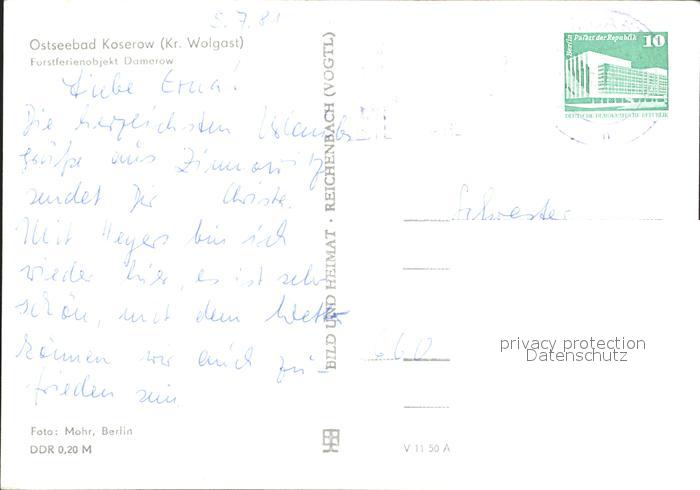 5.7.81
Ostseebad Koserow (Kr. Wolgast)
Forstferienobjekt Damerow
Liebe Erna!
Die herzlichsten Urlaubs
grüße aus Zinnowitz
sendet Dir Christa.
Mit Meyers bin ich
wieder hier, es ist sehr
schön, mit dem Wetter
können wir auch zu-
frieden sein
Foto: Mohr, Berlin
DDR 0,20 M
BILD UND HEIMAT · REICHENBACH (VOGTL)
V 11 50 A
Berlin Palast der Republik 10
DEUTSCHE DEMOKRATISCHE REPUBLIK
Schwester
660
privacy protection
Datenschutz